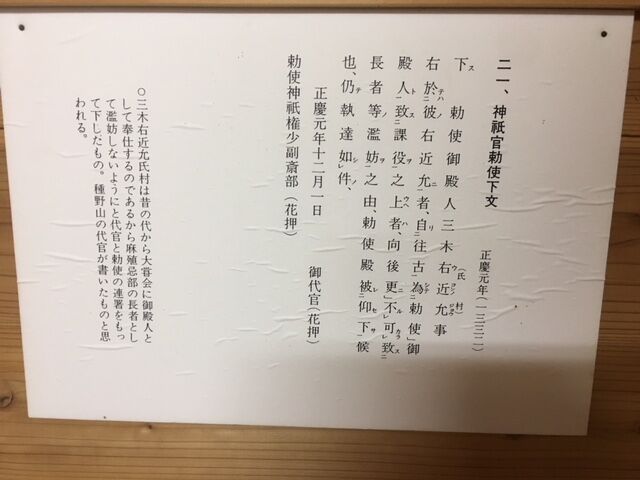 二一、神祇官勅使下文
正慶元年(一三三二)
下ス 勅使御殿人三木右近允事
(氏村)
右於テハ二彼右近允ニ一者、自リ二往古一為シテ二勅使ノ御
殿人ト一致ス二課役ヲ一之上ハ者、向後更ニ不ル可カラレ致ス二
長者等ノ濫妨ヲ一之由、勅使殿被レ二仰セ下サ一候
也、仍テ執達如シレ件ノ、
正慶元年十二月一日
御代官(花押)
勅使神祇権少副斎部(花押)
○三木右近允氏村は昔の代から大嘗会に御殿人と
して奉仕するのであるから麻殖忌部の長者とし
て濫妨しないようにと代官と勅使の連署をもっ
て下したもの。種野山の代官が書いたものと思
われる。